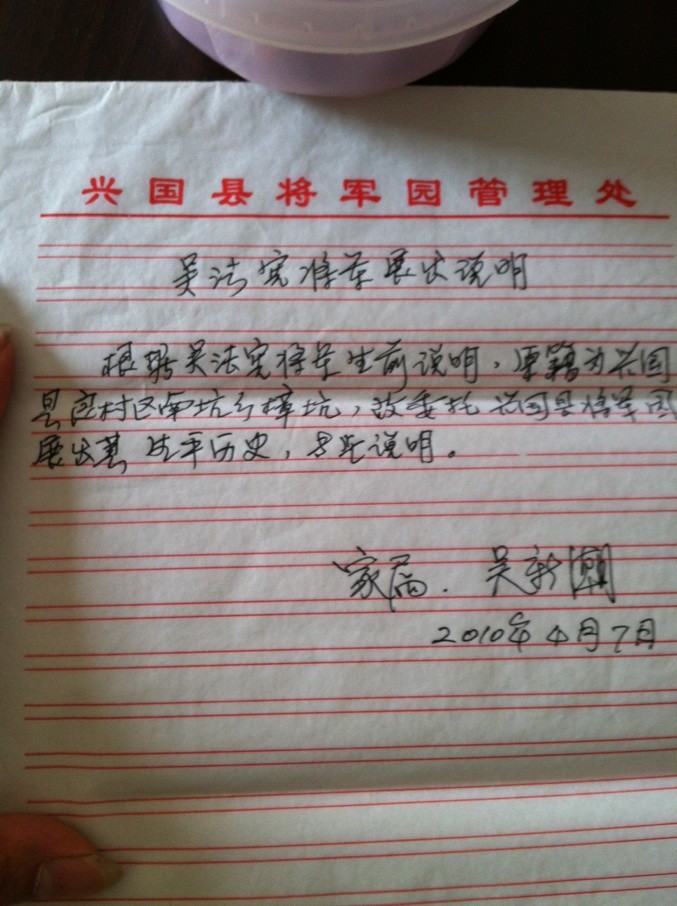 兴国县将军园管理处
吴法宪将军展出说明
根据吴法宪将军生前说明，原籍为兴国
县应村区南坑乡樟坑，故委托兴国县将军园
展出其生平历史，特此说明。
家属．吴新潮
2010年4月7日